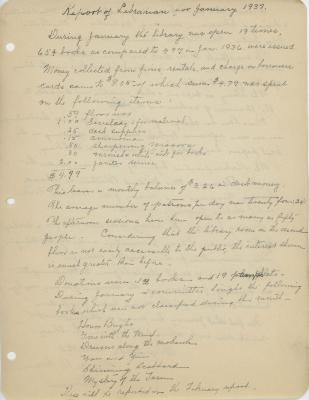 Report of Librarian for January 1937.
During January the library was open 19 times.
654 books as compared to 497 in Jan. 1936 were issued.
Money collected from fines, rentals, and charge on borrowers
cards came to $8.05 of which sum $4.79 was spent
on the following items
.59 floor wax
.25 desk supplies
.15 ammonia
.50 sharpening scissors
2.00 janitor service
This leaves a monthly balance of $3.26 in desk money.
The average number of patrons per day was twenty four
The afternoon sessions have been open to as many as fifty
people. Considering that the library room on the second
floor is not easily accessible to the public, the interest shown
is much greater than before.
Donations were books and 19
During January a committee bought the following
books which were not classified during the month
Gone with the Wind
Drums along the Mohawk
Shimmering Scabbard
Mystery of the
This will be reported in the February report.